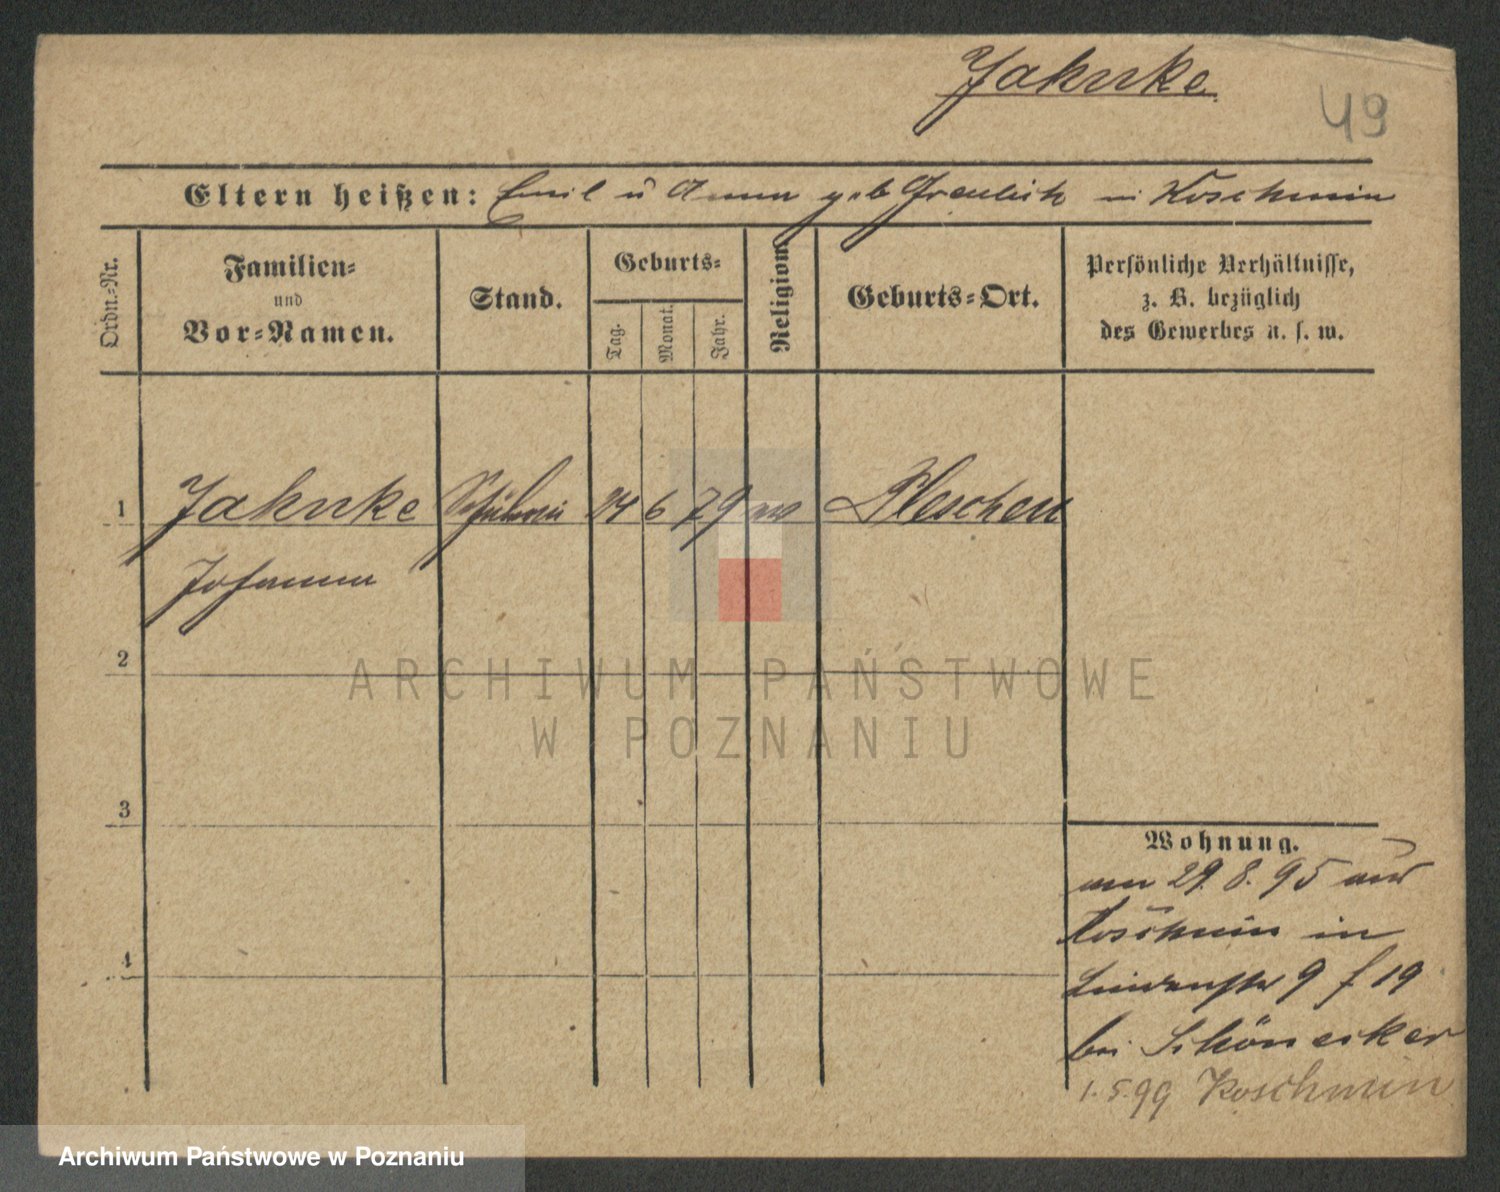 Jahnke
49
Eltern heißen: Emil u Anna geb in Koschmin
Ordn.-Nr.
Familien-
und
Vor-Namen.
Stand.
Geburts-
Tag.
Monat.
Jahr.
Religion.
Geburts-Ort.
Persönliche Verhältnisse,
z. B. bezüglich
des Gewerbes u. s. w.
1 Jahnke Schülerin 24 6 79 Pleschen
Johanna
2
3
4
Wohnung.
am 29. 8. 95 aus
Koschmin in
Lindenstr 9 f 19
bei Schönecker
1. 5. 99 Koschmin
ARCHIWUM PAŃSTWOWE
W POZNANIU
Archiwum Państwowe w Poznaniu